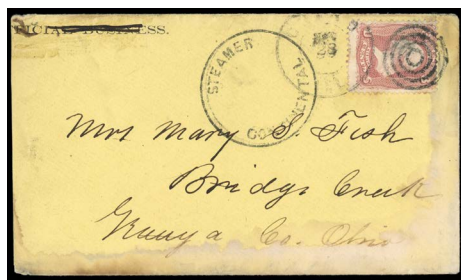 FICIAL BUSINESS.
STEAMER
CONTINENTAL
Mrs Mary S. Fish
Bridge Creek
Geauga Co. Ohio